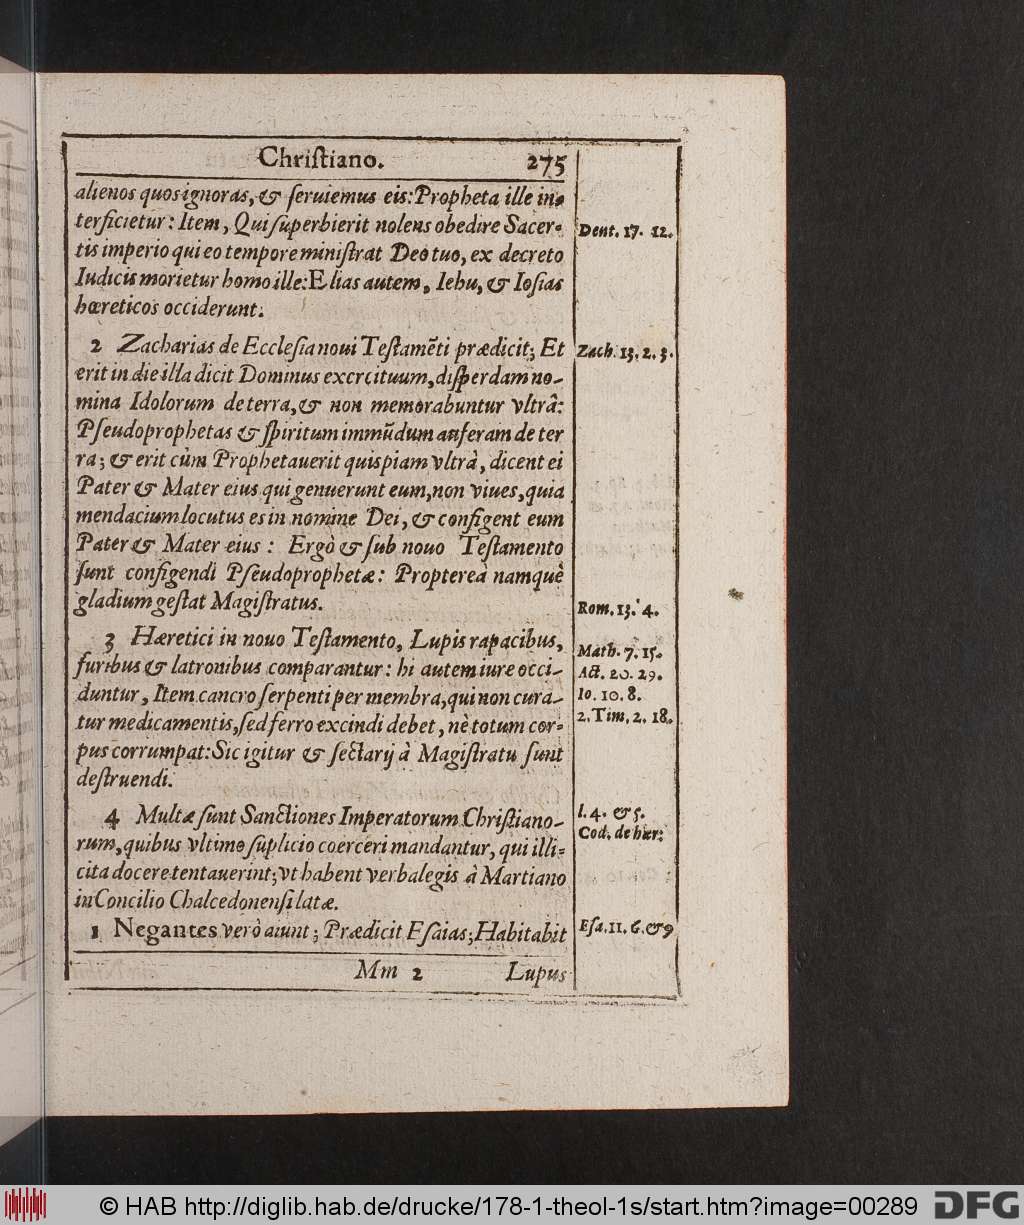 Chriſtiano. 275
alienos quos ignoras, & ſeruiemus eis: Propheta ille in-
terficietur: Item, Qui ſuperbierit nolens obedire Sacer-
tis imperio qui eo tempore miniſtrat Deo tuo, ex decreto
Iudicis morietur homo ille: Elias autem, Iehu, & Ioſias
hæreticos occiderunt.
2 Zacharias de Eccleſia noui Teſtamẽti prædicit; Et
erit in die illa dicit Dominus excrcituum, diſperdam no-
mina Idolorum de terra, & non memorabuntur vltrâ:
Pſeudoprophetas & ſpiritum immũdum auferam de ter
ra; & erit cùm Prophetauerit quispiam vltrà, dicent ei
Pater & Mater eius qui genuerunt eum, non viues, quia
mendacium locutus es in nomine Dei, & configent eum
Pater & Mater eius: Ergò & ſub nouo Teſtamento
ſunt configendi Pſeudoprophetæ: Proptereà namquè
gladium geſtat Magiſtratus.
3 Hæretici in nouo Teſtamento, Lupis rapacibus,
furibus & latronibus comparantur: hi autem iure occi-
duntur, Item cancro ſerpenti per membra, qui non cura-
tur medicamentis, ſed ferro excindi debet, nè totum cor-
pus corrumpat: Sic igitur & ſectarij à Magiſtratu ſunt
deſtruendi.
4 Multæ ſunt Sanctiones Imperatorum Chriſtiano-
rum, quibus vltimo ſuplicio coerceri mandantur, qui illi-
cita docere tentauerint; vt habent verba legis à Martiano
in Concilio Chalcedonenſi latæ.
1 Negantes verò aiunt; Prædicit Eſaias; Habitabit
Mm 2 Lupus
Deut. 17. 12.
Zach. 13. 2. 3.
Rom. 13. 4.
Math. 7. 15.
Act. 20. 29.
Io. 10. 8.
2. Tim. 2. 18.
l. 4. & 5.
Cod. de hær:
Eſa. 11. 6. & 9
© HAB http://diglib.hab.de/drucke/178-1-theol-1s/start.htm?image=00289 DFG